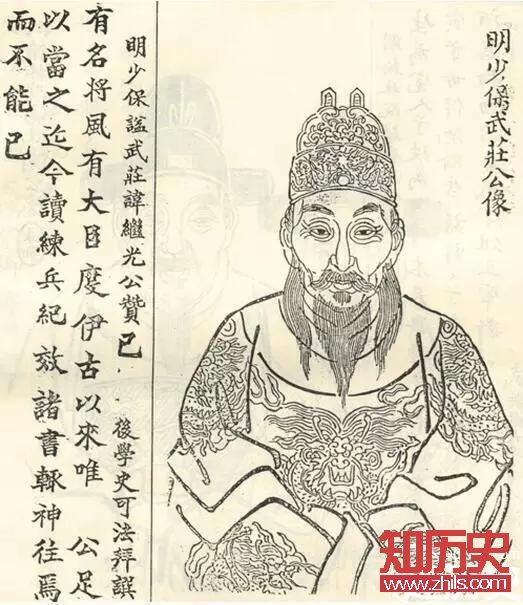 明少保武莊公像
明少保謚武莊諱繼光公贊已 後學史可法拜譔
有名将風有大臣度伊古以來唯 公足
以當之近今讀練兵紀效諸書輒神往焉
而不能已
知历史
www.zhils.com